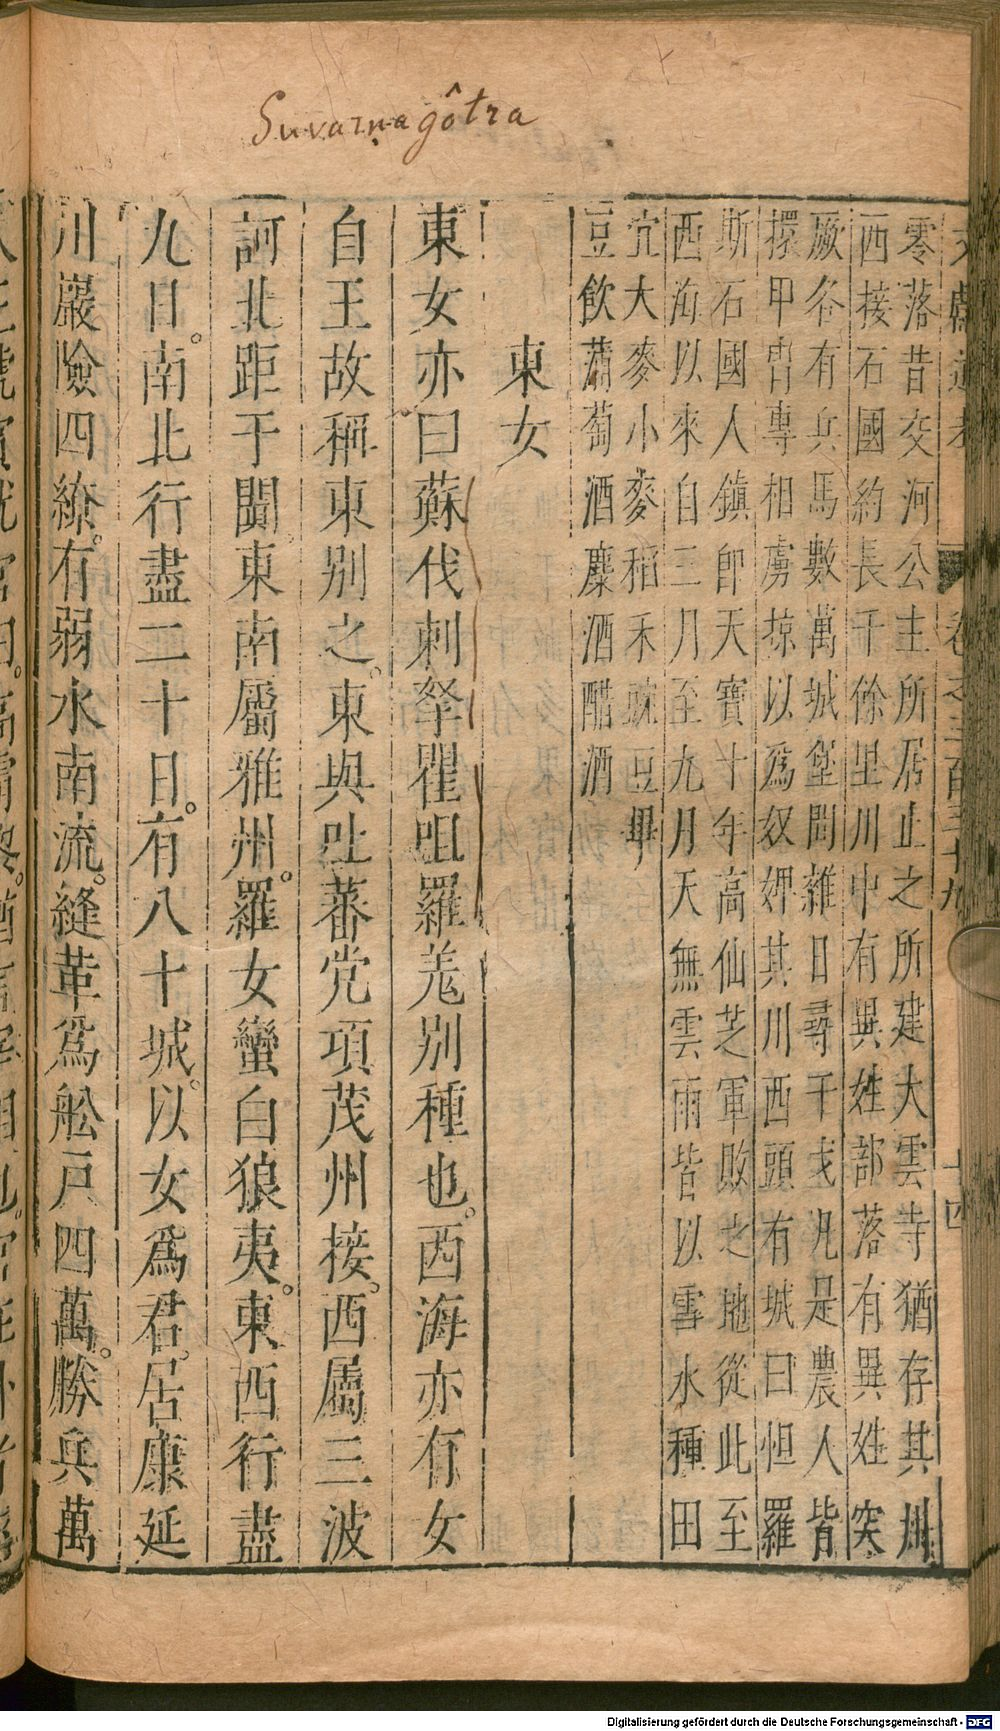 Suvarṇagôtra
文獻通考 卷之三百三十九 十四
零落昔交河公主所居止之所建大雲寺猶存其川
西接石國約長千餘里川中有異姓部落有異姓突
厥各有兵馬數萬城堡閒雜日尋干戈凡是農人皆
擐甲冑專相虜掠以爲奴婢其川西頭有城曰怛羅
斯石國人鎮即天寶十年高仙芝軍敗之地從此至
西海以來自三月至九月天無雲雨皆以雪水種田
宜大麥小麥稻禾豌豆畢
豆飲蒲萄酒麋酒醋酒
東女
東女亦曰蘇伐剌拏瞿咀羅羌別種也。西海亦有女
自王故稱東別之。東與吐蕃党項茂州接。西屬三波
訶北距于闐。東南屬雅州。羅女蠻白狼夷。東西行盡
九日。南北行盡二十日。有八十城。以女爲君。居康延
川巖險四繚。有弱水南流。縫革爲舩戶四萬。勝兵萬
Digitalisierung gefördert durch die Deutsche Forschungsgemeinschaft - DFG